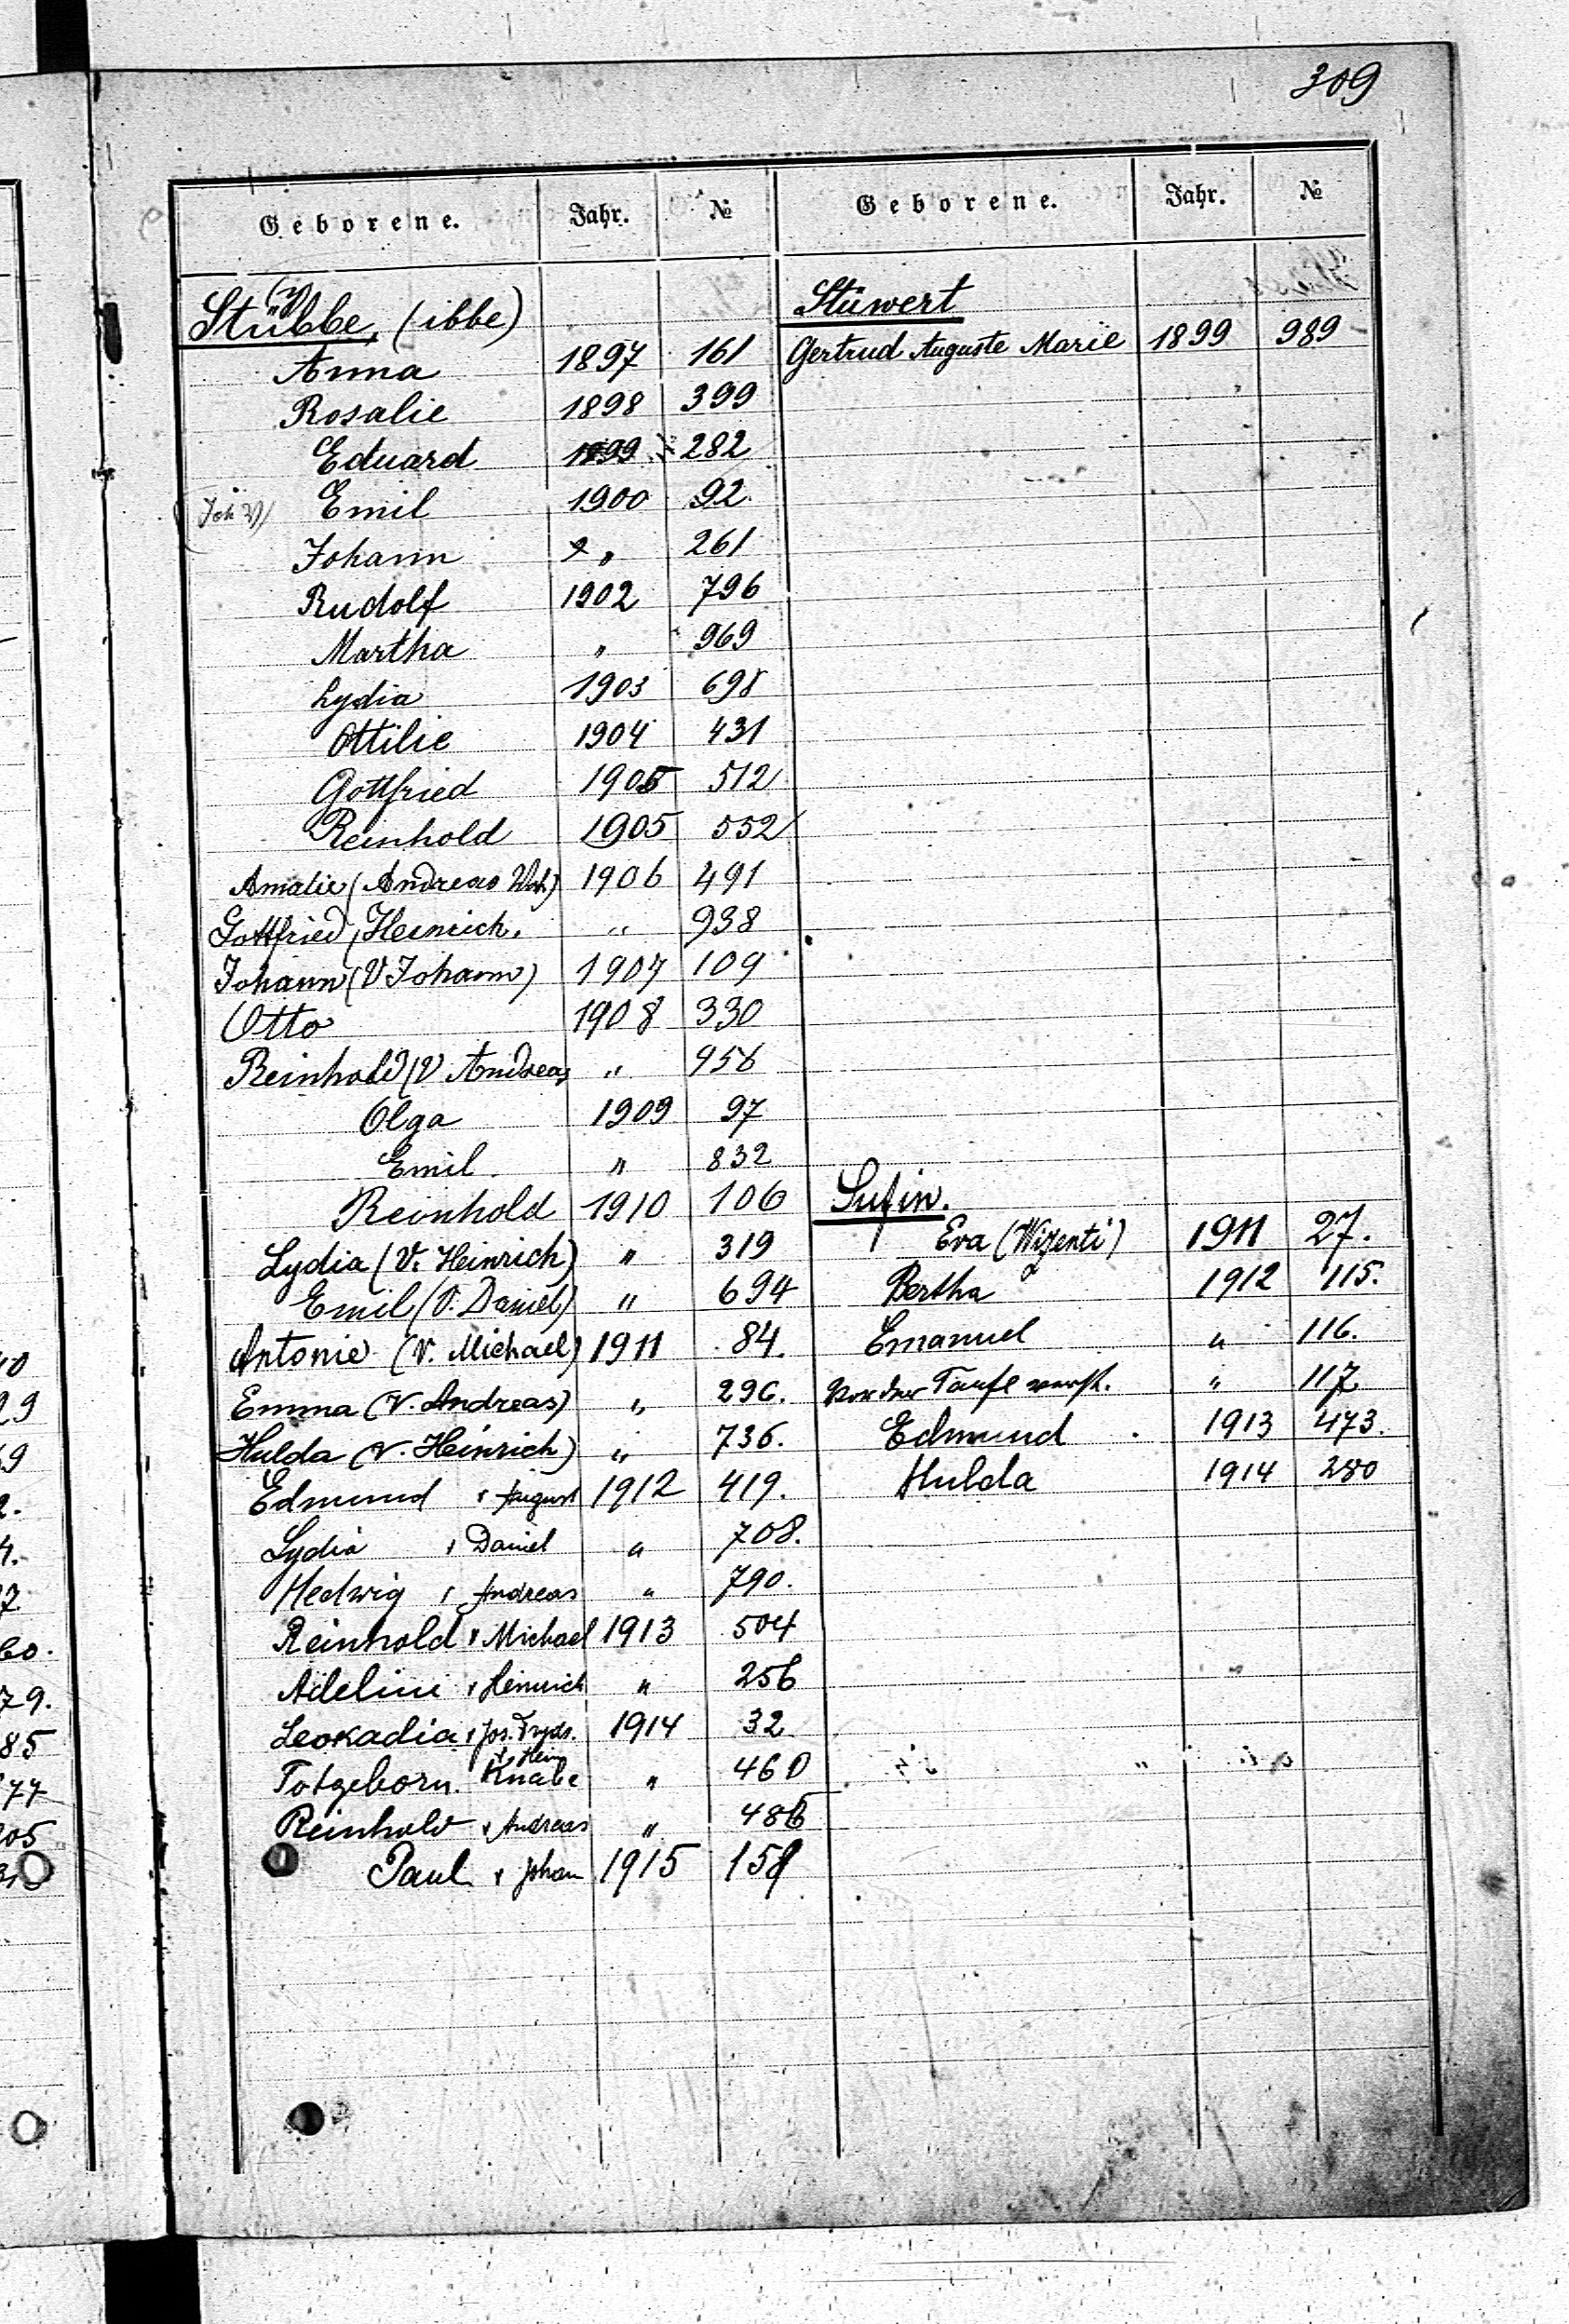 309
Geborene. Jahr. №
Stübbe, (ibbe)
(y)
Anna 1897 161
Rosalie 1898 399
Eduard 1899 282
Emil 1900 92
Johann " 261
Rudolf 1902 796
Martha " 969
Lydia 1903 698
Ottilie 1904 431
Gottfried 1905 512
Reinhold 1905 552
Amalie (Andreas 1906 491
Gottfried, Heinrich. " 938
Johann (V Johann) 1907 109
Otto 1908 330
Reinhold (V Andreas " 956
Olga 1909 97
Emil " 832
Reinhold 1910 106
Lydia (V. Heinrich) " 319
Emil (V. Daniel) " 694
Antonie (V. Michael) 1911 84.
Emma (V. Andreas) " 296.
Hulda (V. Heinrich) " 736.
Edmund v August 1912 419.
Lydia v Daniel " 708.
Hedwig v Andreas " 790.
Reinhold v Michael 1913 504
Adeline v Heinrich " 256
Leokadia v Jos. 1914 32
v Hein
Totgeborn. Knabe " 460
Reinhold v Andreas " 486
Paul v Johan 1915 159
Geborene. Jahr. №
Stüwert
Gertrud Auguste Marie 1899 989
Sufin.
Eva (Wizenti) 1911 27.
Bertha 1912 115.
Emanuel " 116.
Vor der Taufe verst. " 117
Edmund 1913 473.
Hulda 1914 280
10
29
9
2.
4.
7
60.
79.
85
77
05